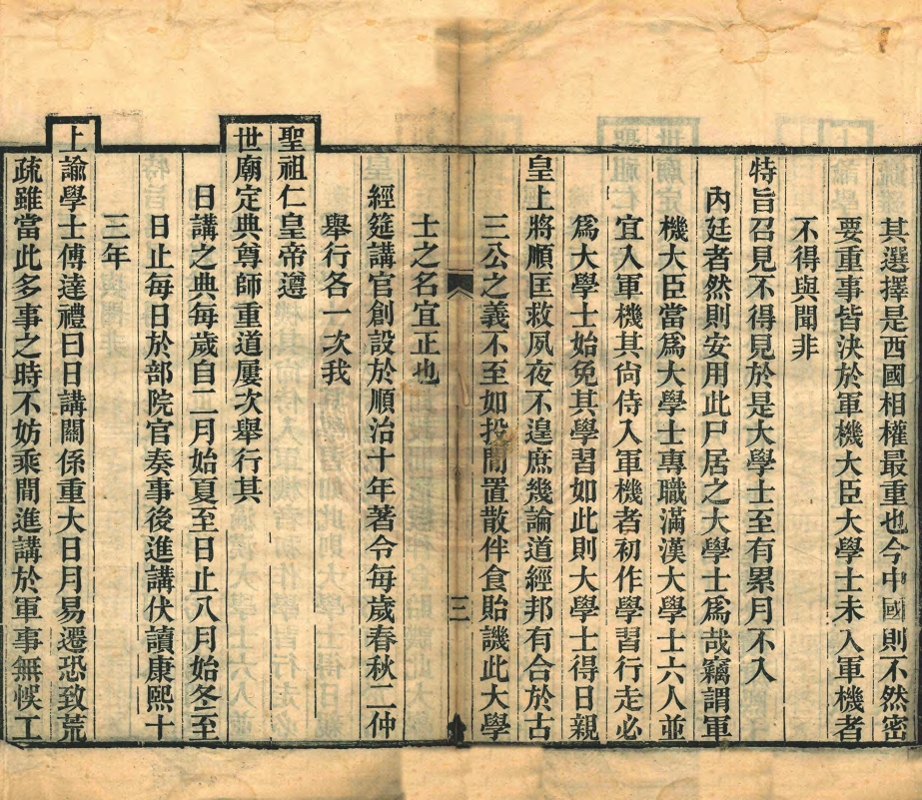 其選擇是西國相權最重也今中國則不然密
要重事皆決於軍機大臣大學士未入軍機者
不得與聞非
特旨召見不得見於是大學士至有累月不入
內廷者然則安用此尸居之大學士爲哉竊謂軍
機大臣當爲大學士專職滿漢大學士六人並
宜入軍機其尙侍入軍機者初作學習行走必
爲大學士始免其學習如此則大學士得日親
皇上將順匡救夙夜不遑庶幾論道經邦有合於古
三公之義不至如投閒置散伴食貽譏此大學
士之名宜正也
經筵講官創設於順治十年著令每歲春秋二仲
舉行各一次我
聖祖仁皇帝遵
世廟定典尊師重道屢次舉行其
日講之典每歲自二月始夏至日止八月始冬至
日止每日於部院官奏事後進講伏讀康熙十
三年
上諭學士傅達禮曰日講關係重大日月易遷恐致荒
疏雖當此多事之時不妨乘間進講於軍事無悞工
三